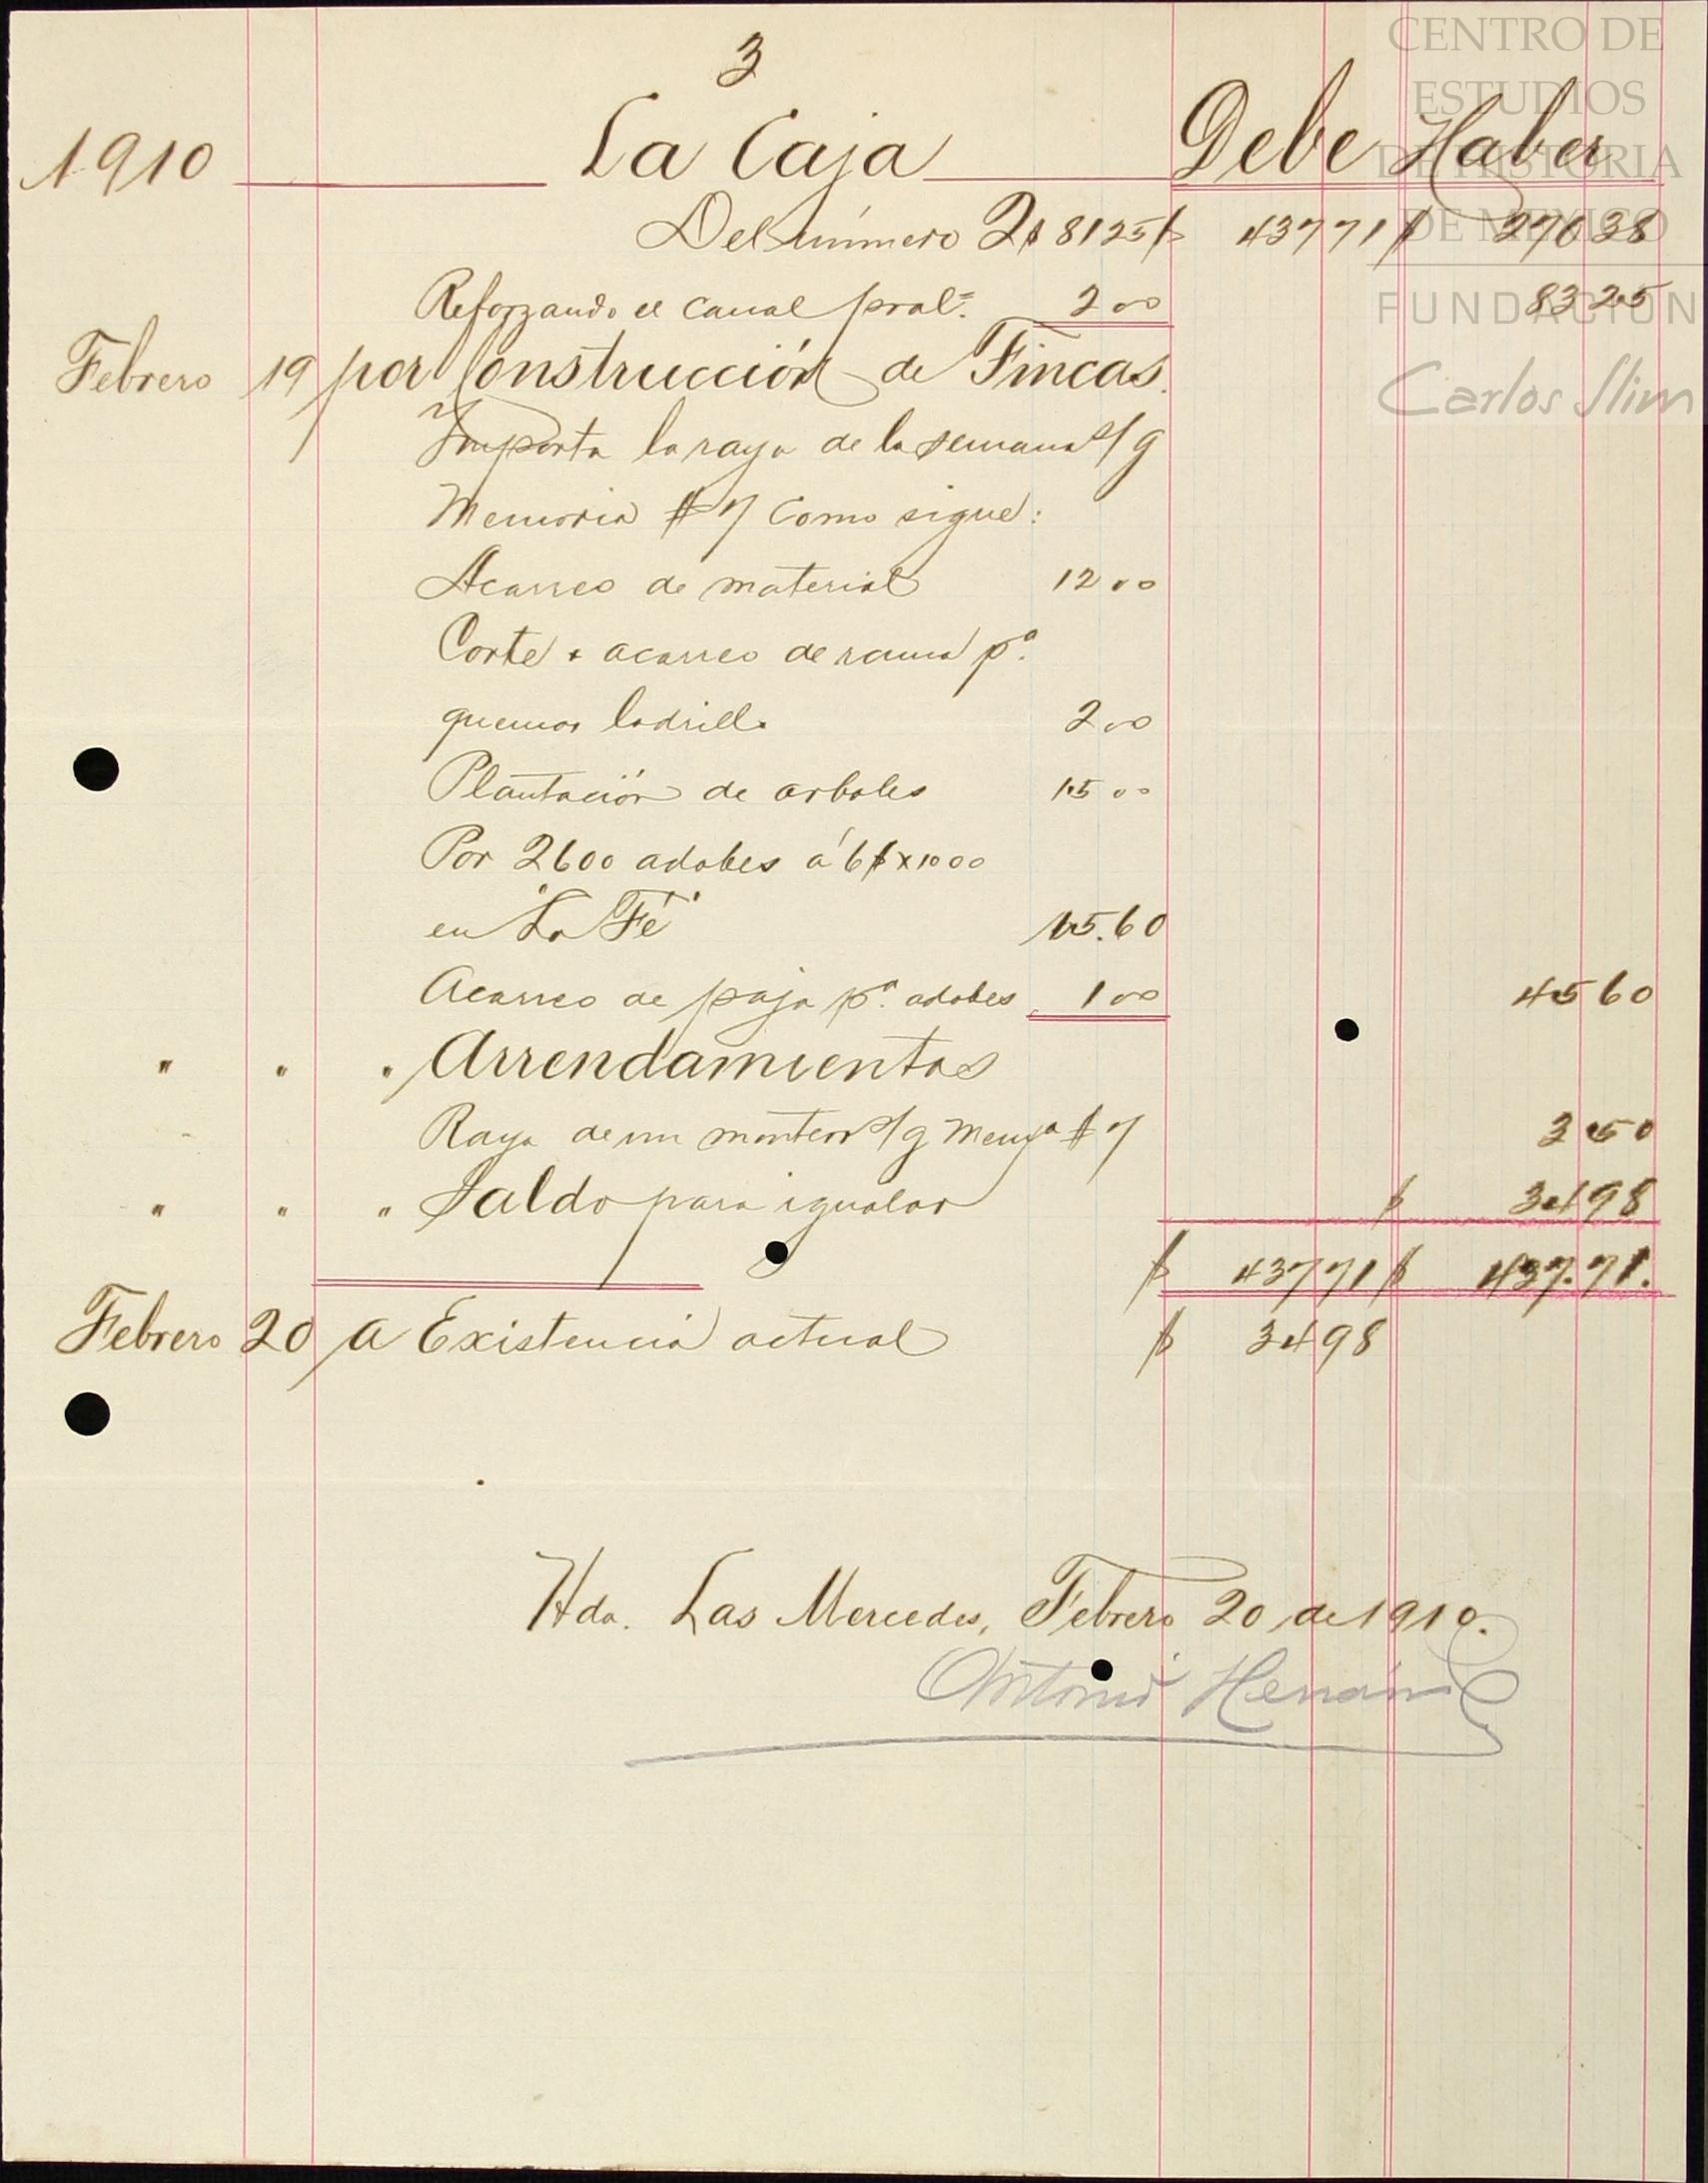 CENTRO DE
ESTUDIOS
DE HISTORIA
DE MEXICO
FUNDACIÓN
Carlos Slim
3
1910 La Caja Debe Haber
Del número 2 $ 81 25 $ 437 71 $ 270 38
Reforzando el canal pral. 2 00 83 25
Febrero 19 por Construcción de Fincas.
Importa la raya de la semana s/g
Memoria # 7 Como sigue:
Acarreo de material 12 00
Corte + acarreo de rama pa.
quemar ladrillo 2 00
Plantación de arboles 15 00
Por 2600 adobes á 6$ x 1000
en "La Fé" 15.60
Acarreo de paja pa. adobes 1 00 45 60
" " " Arrendamientos
Raya de un montero s/g # 7 3 50
" " " Saldo para igualar $ 34 98
$ 437 71 $ 437.71.
Febrero 20 a Existencia actual $ 34 98
Hda. Las Mercedes, Febrero 20 de 1910.
Antonio